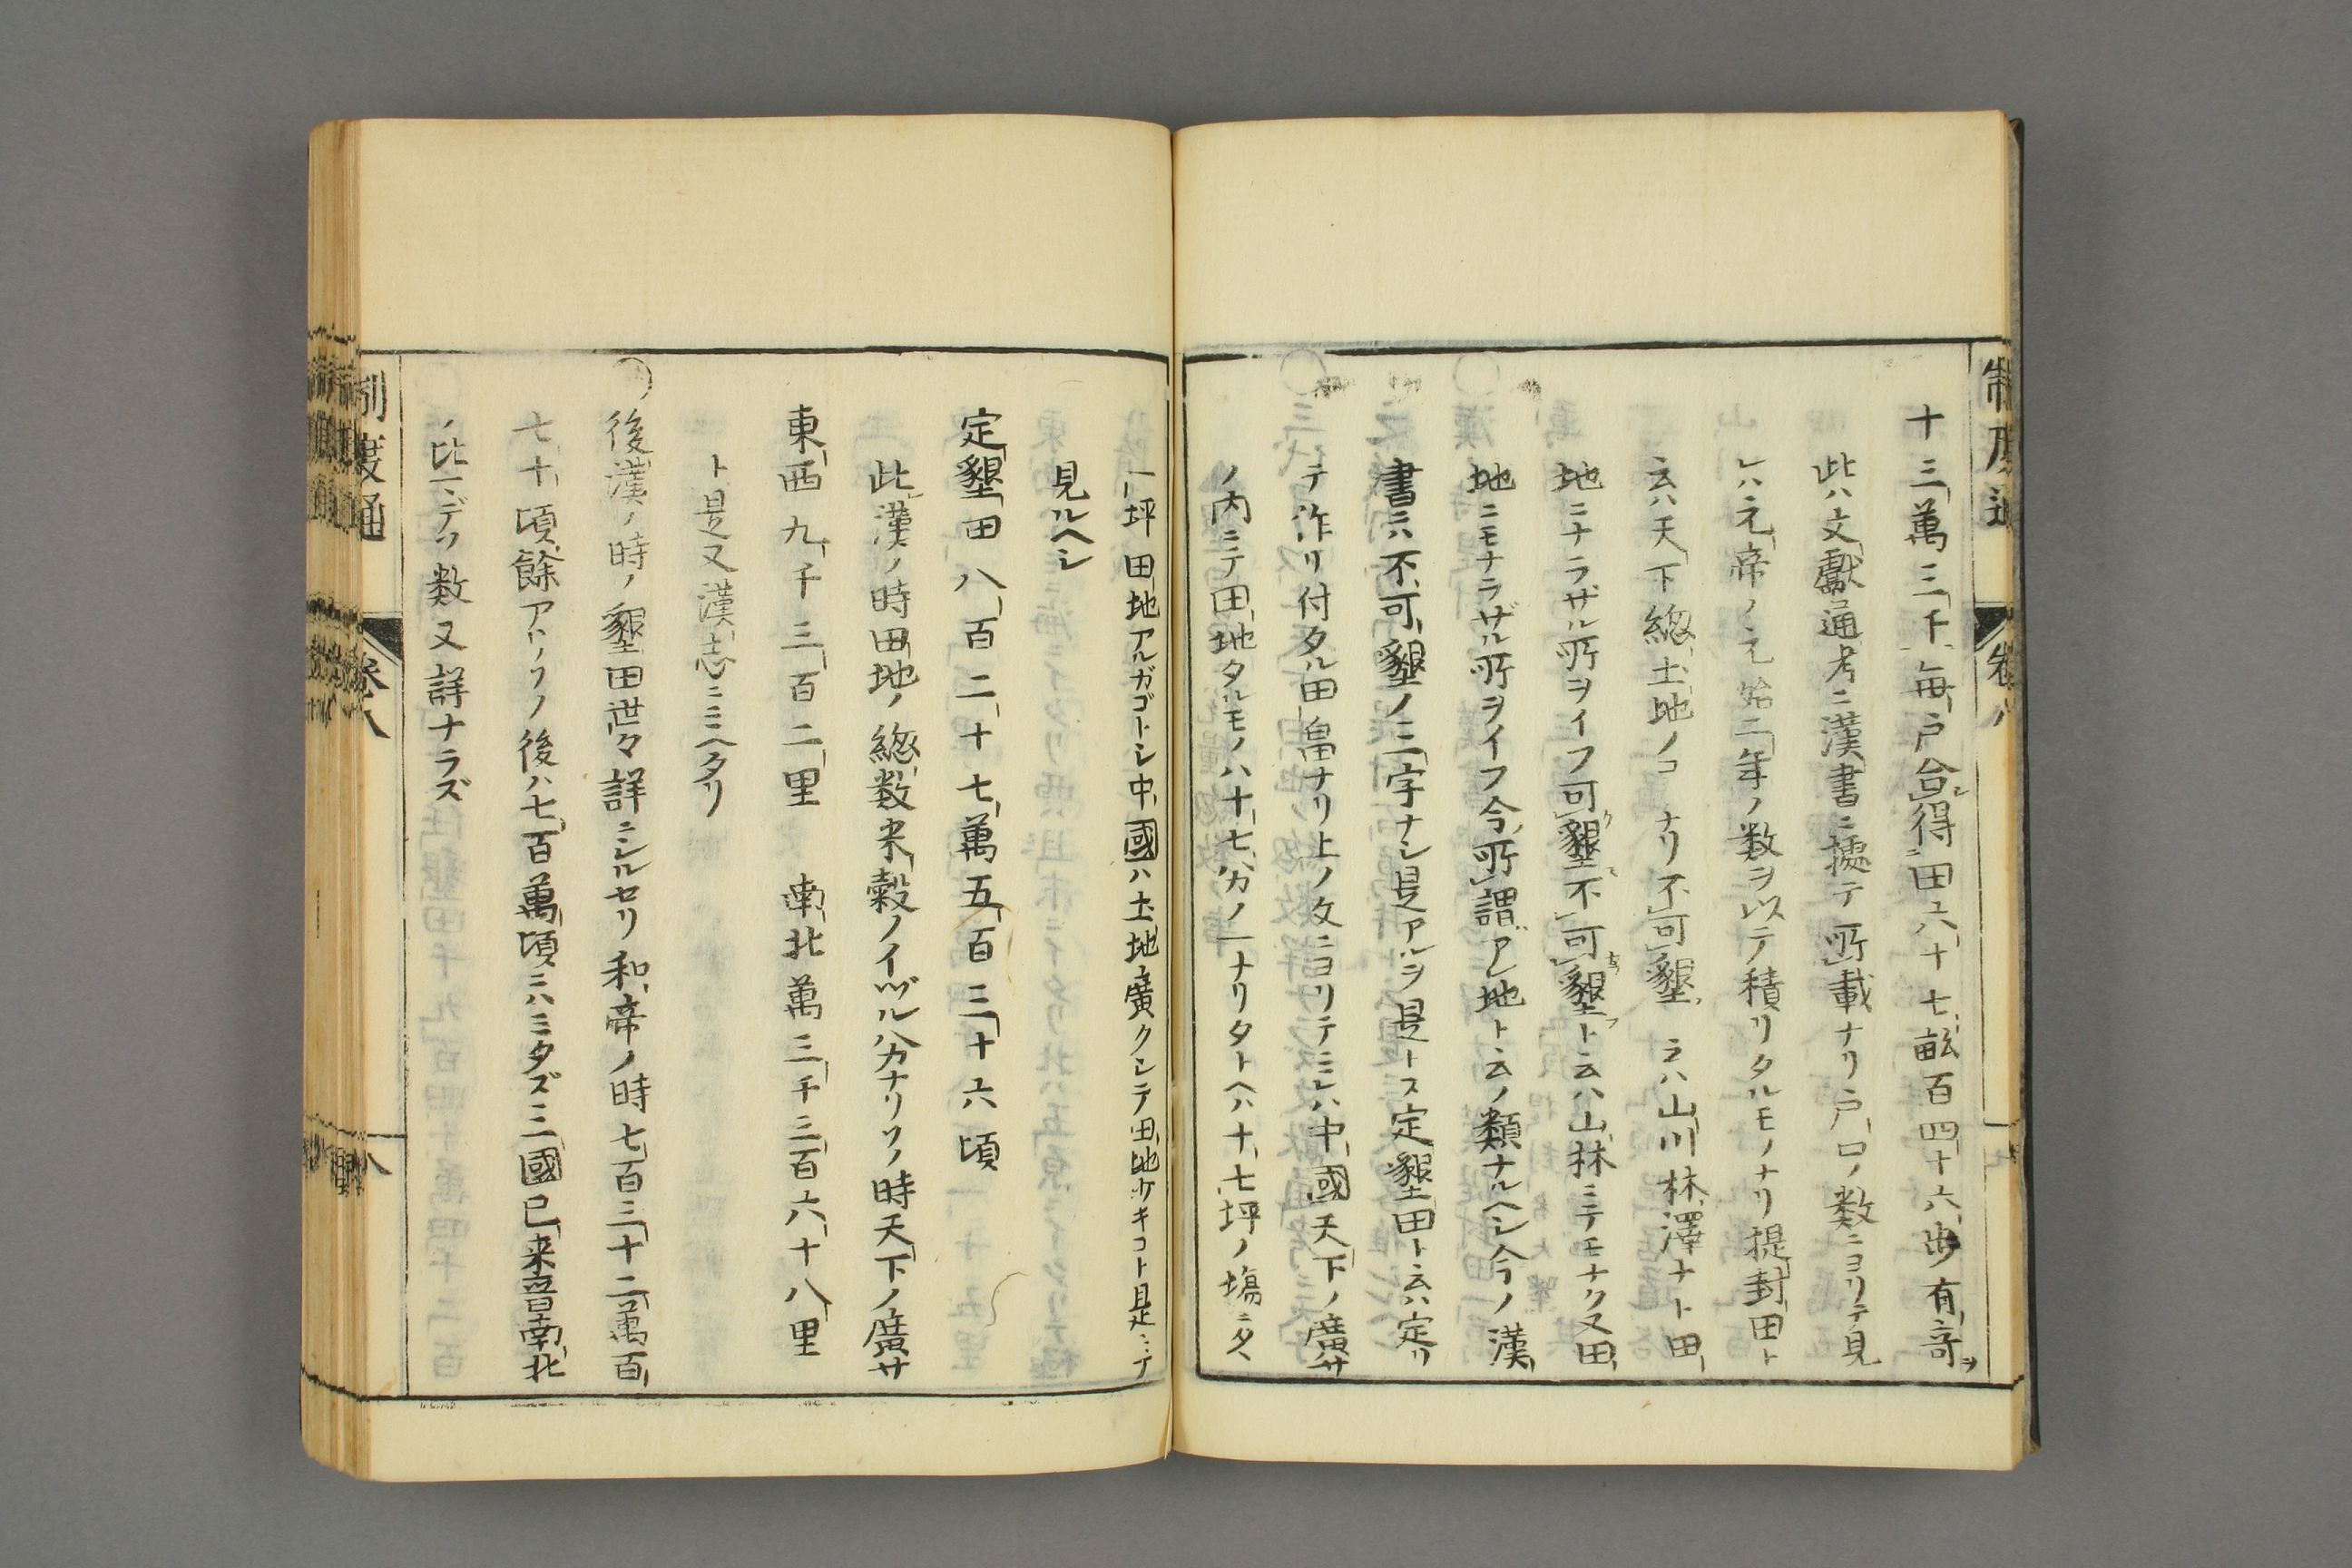 十三萬三千毎戸合得田六十七畝百四十六歩有奇
此ハ文獻通考ニ漢書ニ據テ所載ナリ戸口ノ数ニヨリテ見
レハ元帝ノ元始二年ノ数ヲ以テ積リタルモノナリ提封田ト
云ハ天下総土地ノコナリ不可墾云ハ山川林澤ナト田
地ニナラザル所ヲイフ可墾不可墾ト云ハ山林ニテモナク又田
地ニモナラザル所ヲイフ今所謂アレ地ト云ノ類ナルヘシ今ノ漢
書ニハ不可墾ノ三字ナシ是アルヲ是トス定墾田ト云ハ定リ
テ作リ付タル田畠ナリ上ノ文ニヨリテミレハ中國天下ノ廣サ
ノ内ニテ田地タルモノハ十七分ノ一ナリタトヘハ十七坪ノ塲ニタヽ
一坪田地アルガゴトシ中國ハ土地廣クシテ田地少キコト是ニテ
見ルヘシ
定墾田八百二十七萬五百三十六頃
此漢ノ時田地ノ総数米穀ノイヅル分ナリソノ時天下ノ廣サ
東西九千三百二里　南北萬三千三百六十八里
ト是又漢志ニミヘタリ
○後漢ノ時ノ墾田世々詳ニシルセリ和帝ノ時七百三十二萬百
七十頃餘アリソノ後ハ七百萬頃ニハミタズ三國已来晉南北
ノ比マデノ数又詳ナラズ
制度通
卷八
八
制度通
卷八
七